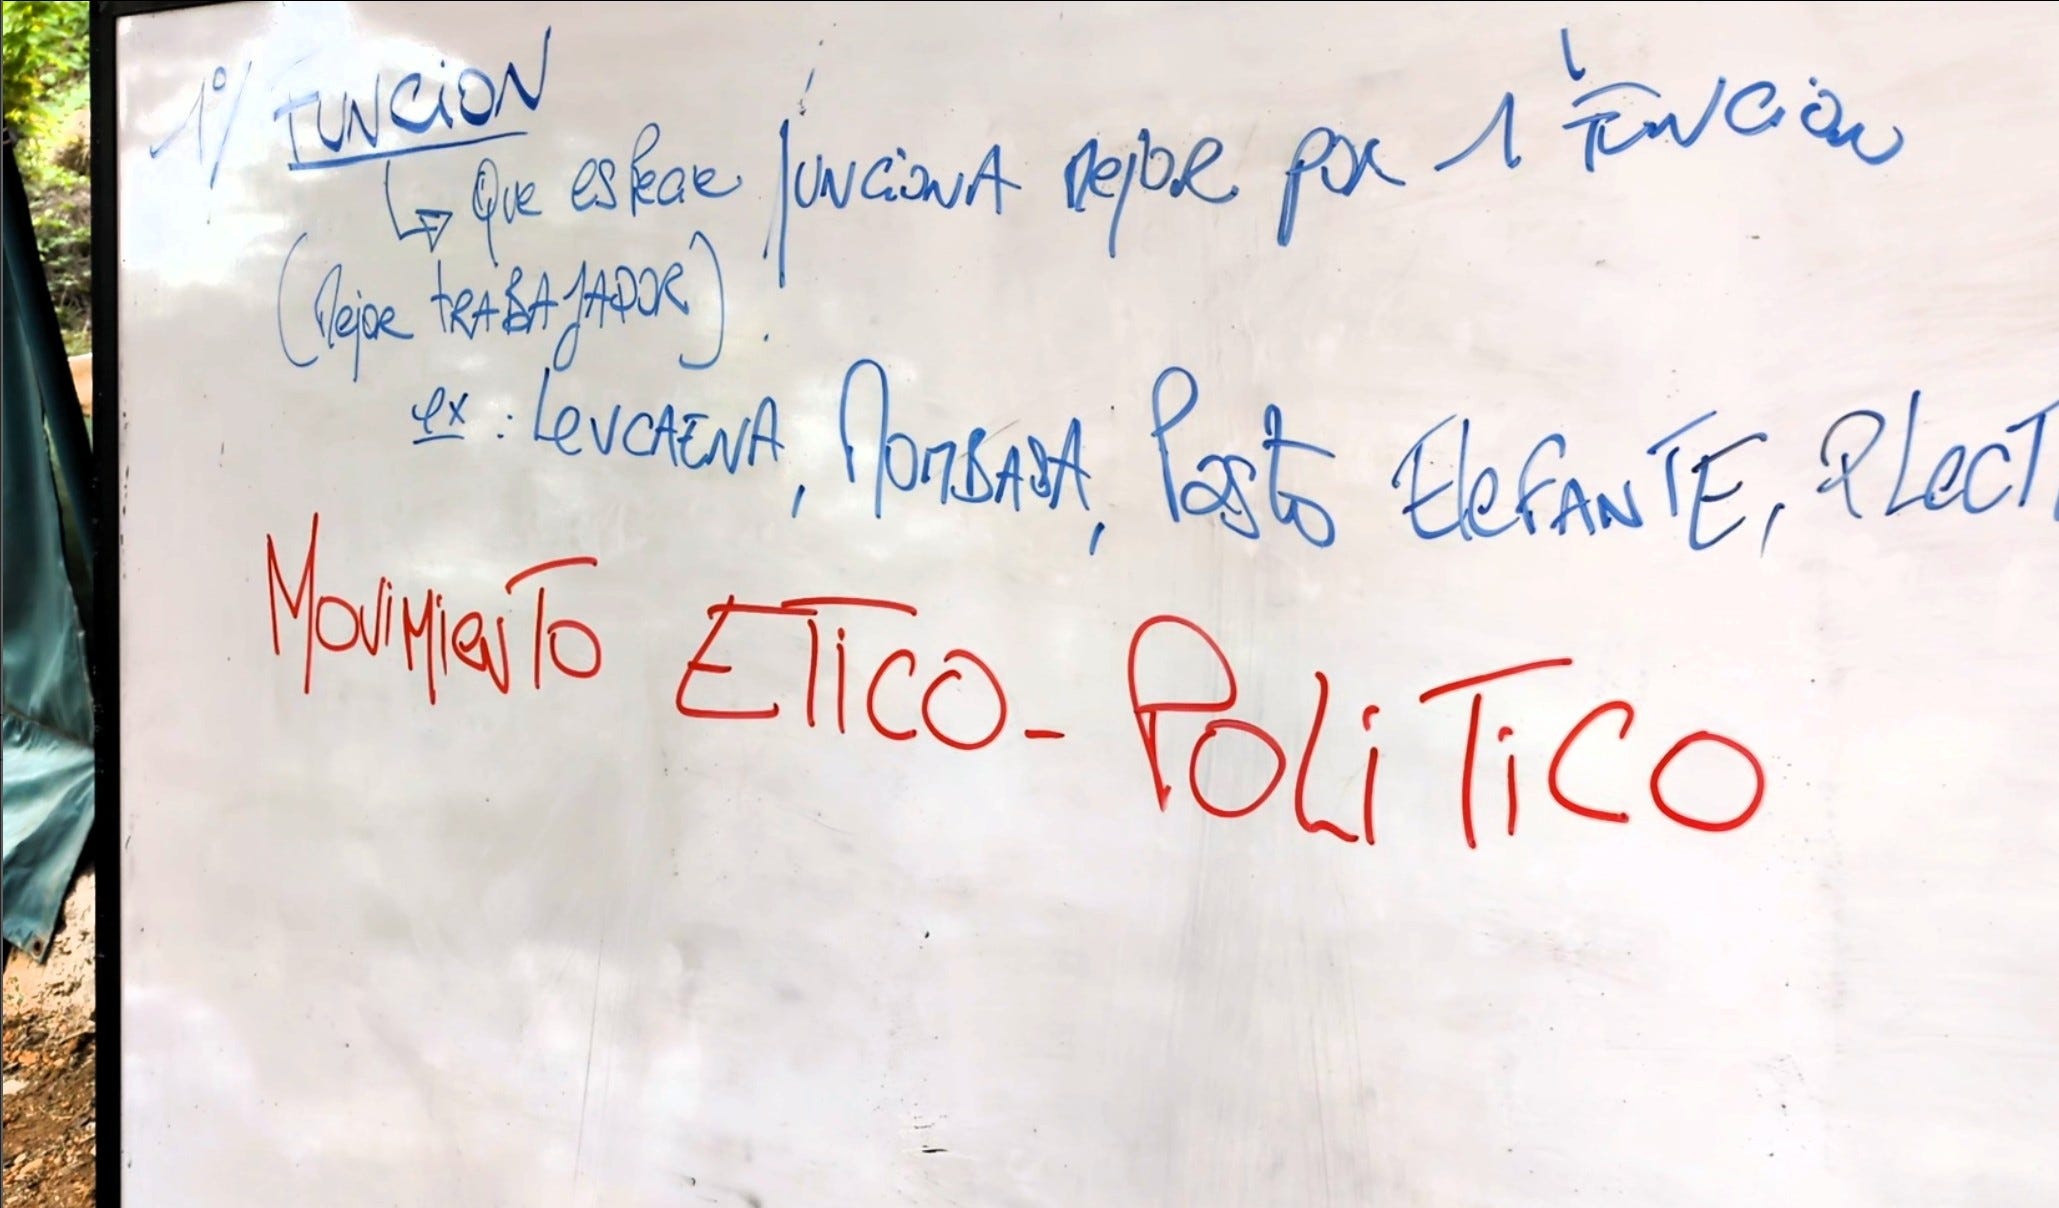 1°/ FUNCION
↳ Que especie funciona mejor por 1 FUNCION
(Mejor TRABAJADOR).
ex : LeUCAENA, MOMBASA, Pasto ElefANTE, PLecT
MOViMieNTO ETiCO - POLiTiCO